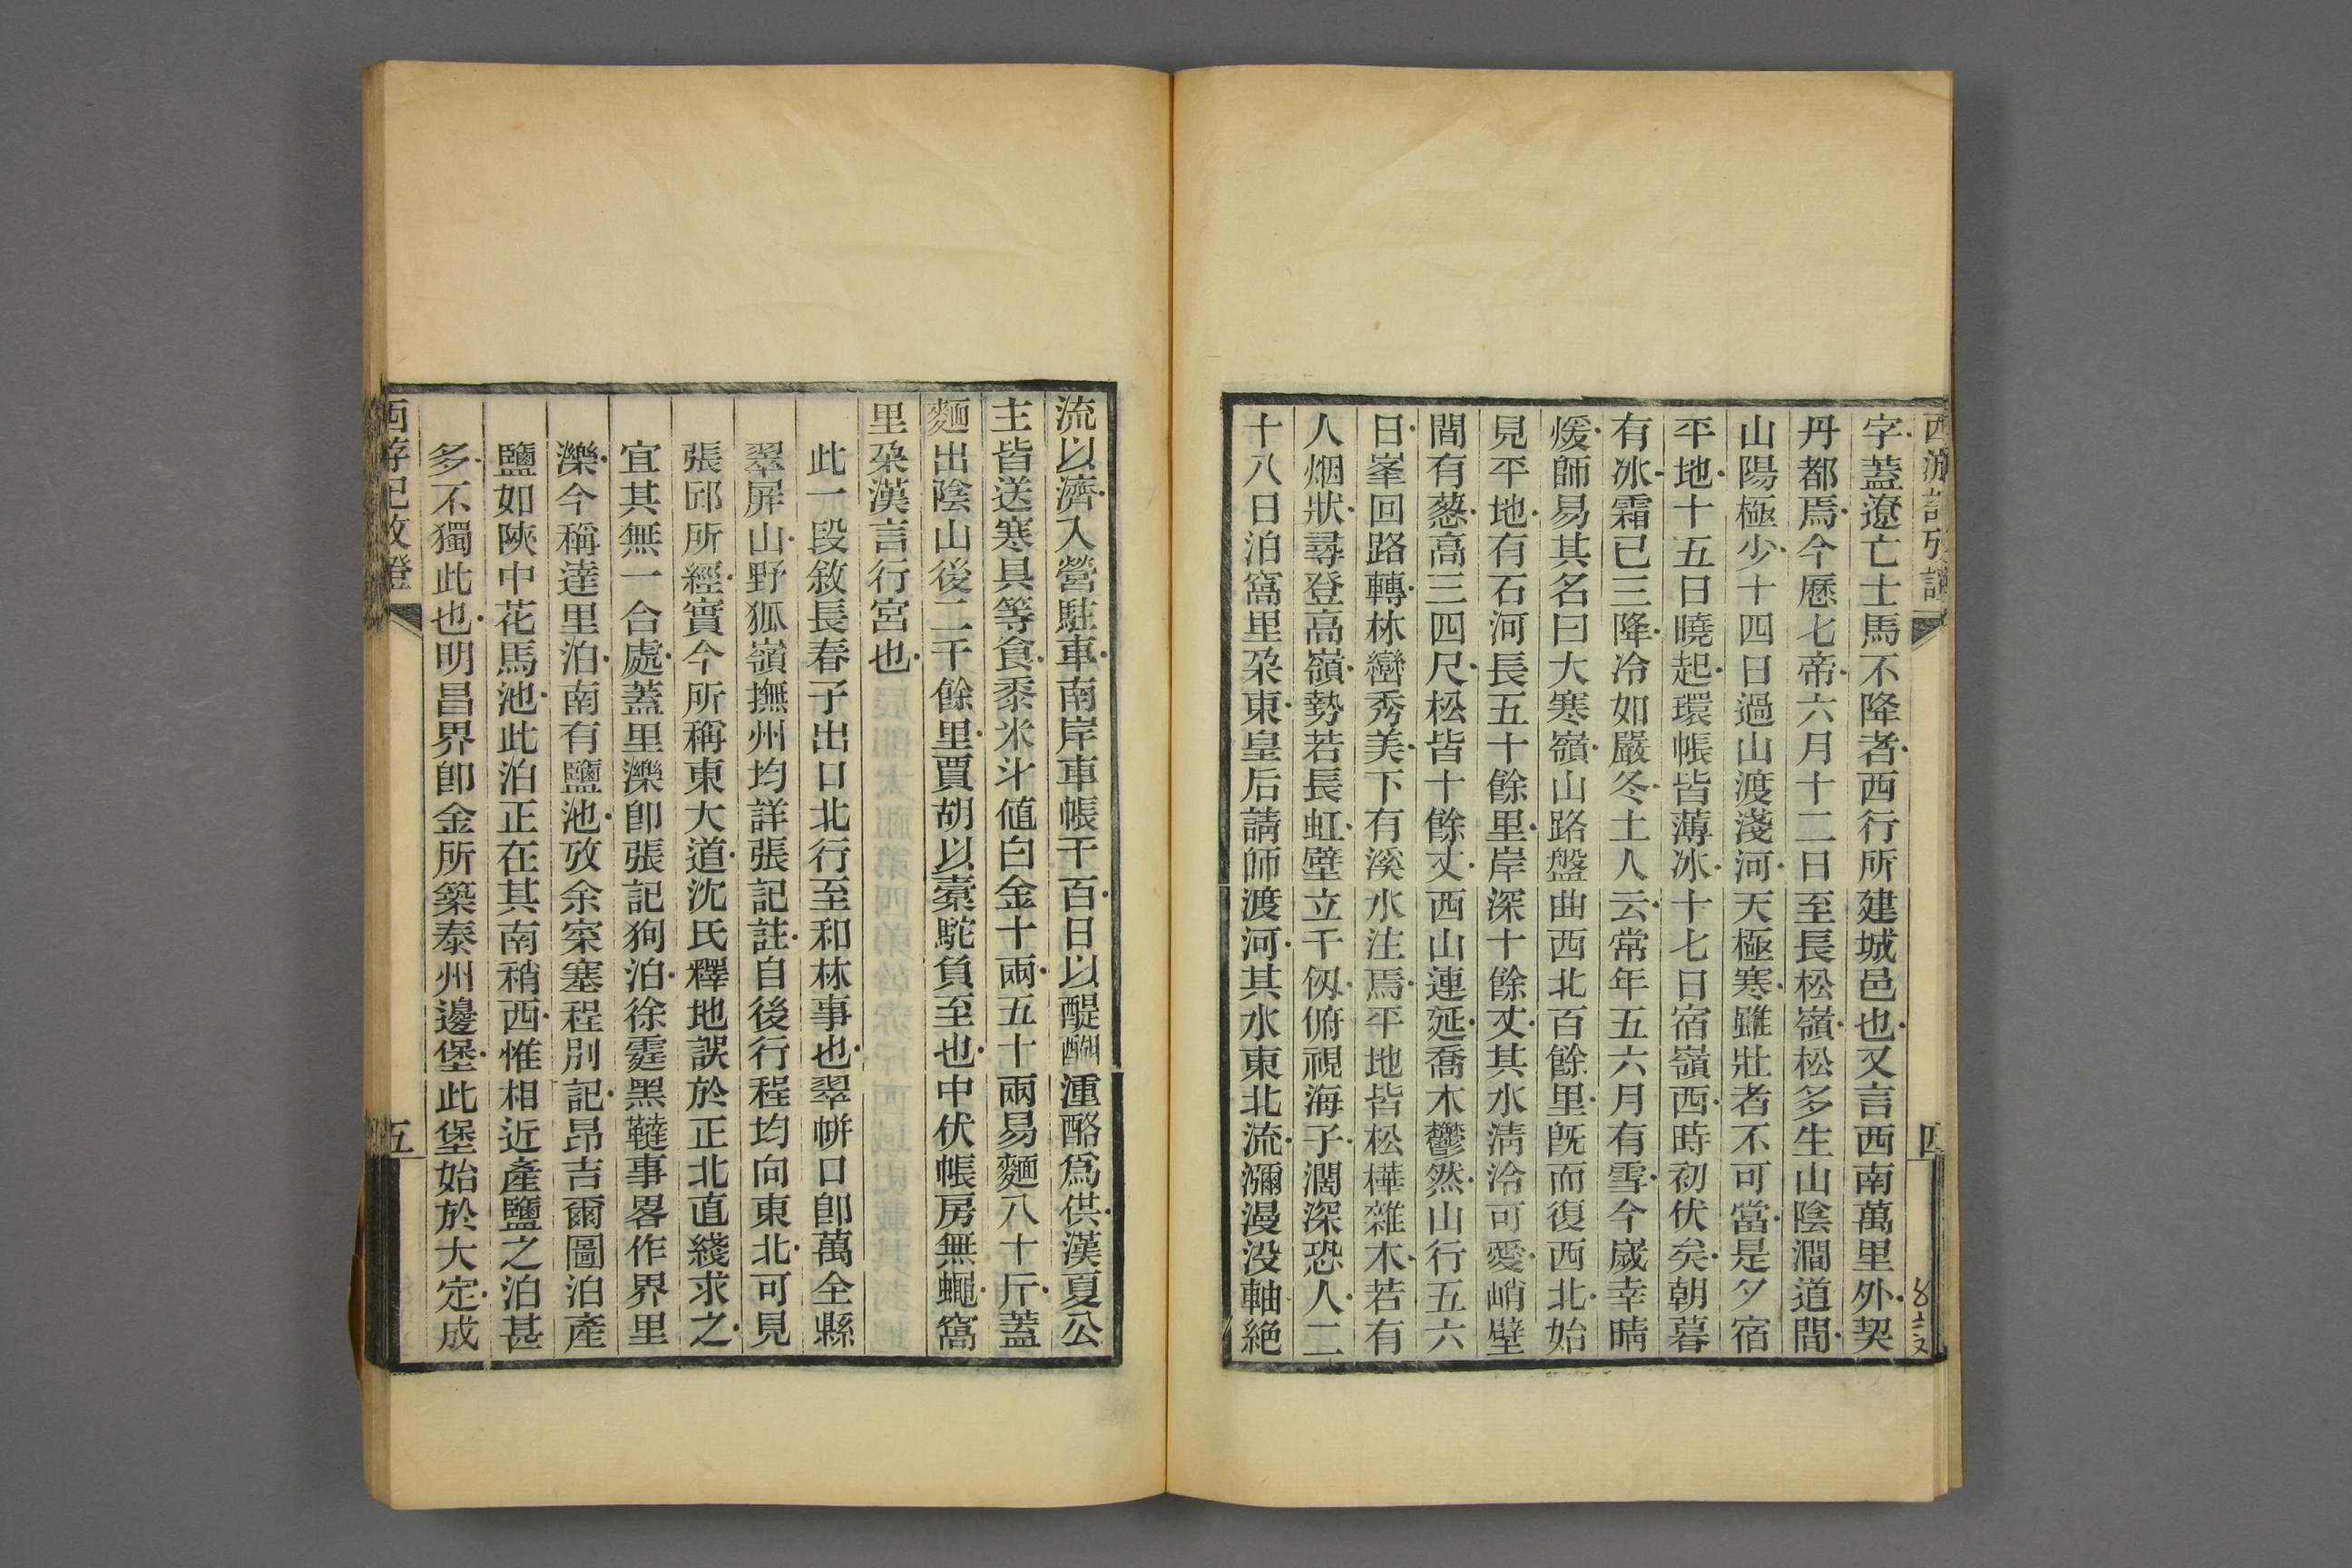 西游記攷證
四
字蓋遼亡士馬不降者西行所建城邑也又言西南萬里外契
丹都焉今厯七帝六月十二日至長松嶺松多生山陰澗道間
山陽極少十四日過山渡淺河天極寒雖壯者不可當是夕宿
平地十五日曉起環帳皆薄冰十七日宿嶺西時初伏矣朝暮
有冰霜已三降冷如嚴冬土人云常年五六月有雪今嵗幸晴
煖師易其名曰大寒嶺山路盤曲西北百餘里旣而復西北始
見平地有石河長五十餘里岸深十餘丈其水淸泠可愛峭壁
間有葱高三四尺松皆十餘丈西山連延喬木鬱然山行五六
日峯回路轉林巒秀美下有溪水注焉平地皆松樺雜木若有
人烟狀尋登高嶺勢若長虹壁立千仭俯視海子濶深恐人二
十八日泊窩里朶東皇后請師渡河其水東北流瀰漫没軸絕
流以濟入營駐車南岸車帳千百日以醍醐湩酪爲供漢夏公
主皆送寒具等食黍米斗値白金十兩五十兩易麵八十斤蓋
麵出陰山後二千餘里賈胡以槖駝負至也中伏帳房無蠅窩
里朶漢言行宮也
此一段敘長春子出口北行至和林事也翠帡口卽萬全縣
翠屛山野狐嶺撫州均詳張記註自後行程均向東北可見
張邱所經實今所稱東大道沈氏釋地誤於正北直綫求之
宜其無一合處蓋里濼卽張記狗泊徐霆黑韃事畧作界里
濼今稱達里泊南有鹽池攷余寀塞程別記昂吉爾圖泊產
鹽如陝中花馬池此泊正在其南稍西惟相近產鹽之泊甚
多不獨此也明昌界卽金所築泰州邊堡此堡始於大定成
西游記攷證
五